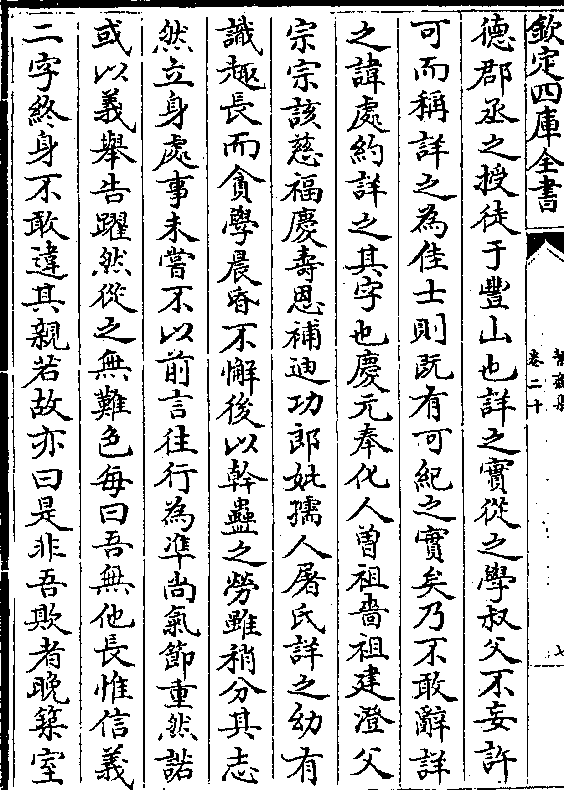 欽定四庫全書
卷二十
七
德郡丞之授徒于豐山也詳之實從之學叔父不妄許
可而稱詳之為佳士則既有可紀之實矣乃不敢辭詳
之諱處約詳之其字也慶元奉化人曽祖嗇祖建澄父
宗宗該慈福慶壽恩補迪功郎妣孺人屠氏詳之幼有
識趣長而貪學晨昏不懈後以幹蠱之勞雖稍分其志
然立身處事未嘗不以前言往行為凖尚氣節重然諾
或以義舉告躍然從之無難色每曰吾無他長惟信義
二字終身不敢違其親若故亦曰是非吾欺者晚築室